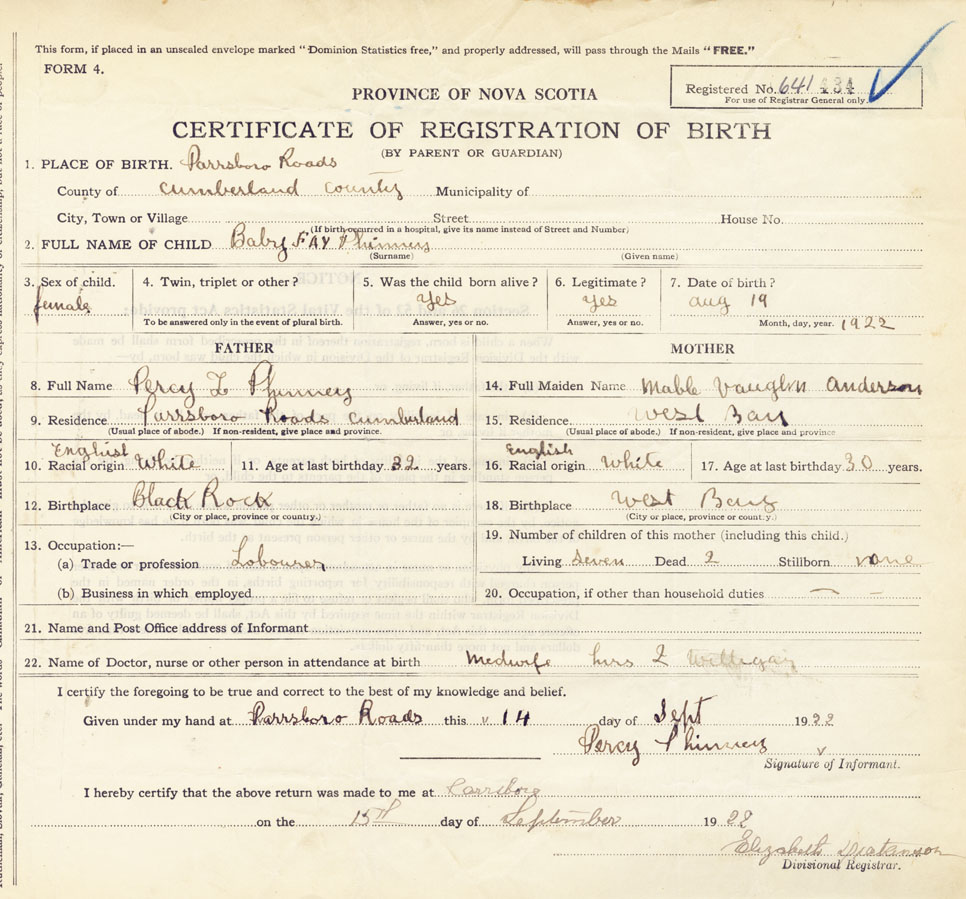 This form, if placed in an unsealed envelope marked "Dominion Statistics free," and properly addressed, will pass through the Mails "FREE."
FORM 4.
Registered No. 641
For use of Registrar General only.
PROVINCE OF NOVA SCOTIA
CERTIFICATE OF REGISTRATION OF BIRTH
(BY PARENT OR GUARDIAN)
1. PLACE OF BIRTH. Parrsboro Roads
County of Cumberland County Municipality of
City, Town or Village Street House No.
(If birth occurred in a hospital, give its name instead of Street and Number)
2. FULL NAME OF CHILD Baby FAY Phinney
(Surname) (Given name)
3. Sex of child. female
4. Twin, triplet or other?
To be answered only in the event of plural birth.
5. Was the child born alive?
Yes
Answer, yes or no.
6. Legitimate?
Yes
Answer, yes or no.
7. Date of birth?
aug 19
Month, day, year. 1922
FATHER
8. Full Name Percy L Phinney
9. Residence Parrsboro Roads Cumberland
(Usual place of abode.) If non-resident, give place and province.
English
10. Racial origin White 11. Age at last birthday 32 years.
12. Birthplace Black Rock
(City or place, province or country.)
13. Occupation:—
(a) Trade or profession Labourer
(b) Business in which employed
MOTHER
14. Full Maiden Name Mable Vaughn Anderson
15. Residence West Bay
(Usual place of abode.) If non-resident, give place and province
English
16. Racial origin White 17. Age at last birthday 30 years.
18. Birthplace West Bay
(City or place, province or country.)
19. Number of children of this mother (including this child.)
Living Seven Dead 2 Stillborn none
20. Occupation, if other than household duties
21. Name and Post Office address of Informant
22. Name of Doctor, nurse or other person in attendance at birth Medwife
I certify the foregoing to be true and correct to the best of my knowledge and belief.
Given under my hand at Parrsboro Roads this 14 day of Sept 1922
Percy Phinney
Signature of Informant.
I hereby certify that the above return was made to me at Parrsboro
on the 15th day of September 1922
Elizabeth
Divisional Registrar.